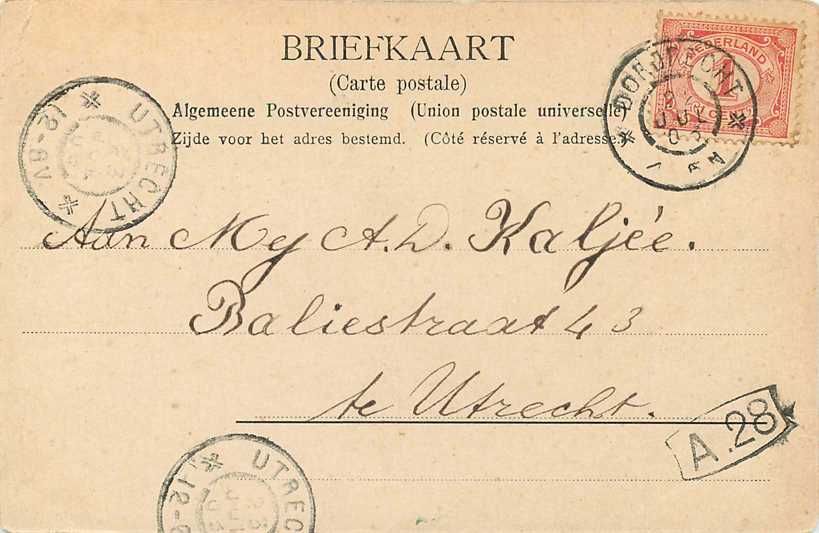 BRIEFKAART
(Carte postale)
Algemeene Postvereeniging (Union postale universelle)
Zijde voor het adres bestemd. (Côté réservé à l'adresse.
NEDERLAND
1
JUL
03
UTRECHT
12-8V
Aan Mej A.D. Kaljée.
Baliestraat 43
te Utrecht.
A.28
UTREC
JUL
03
12-8